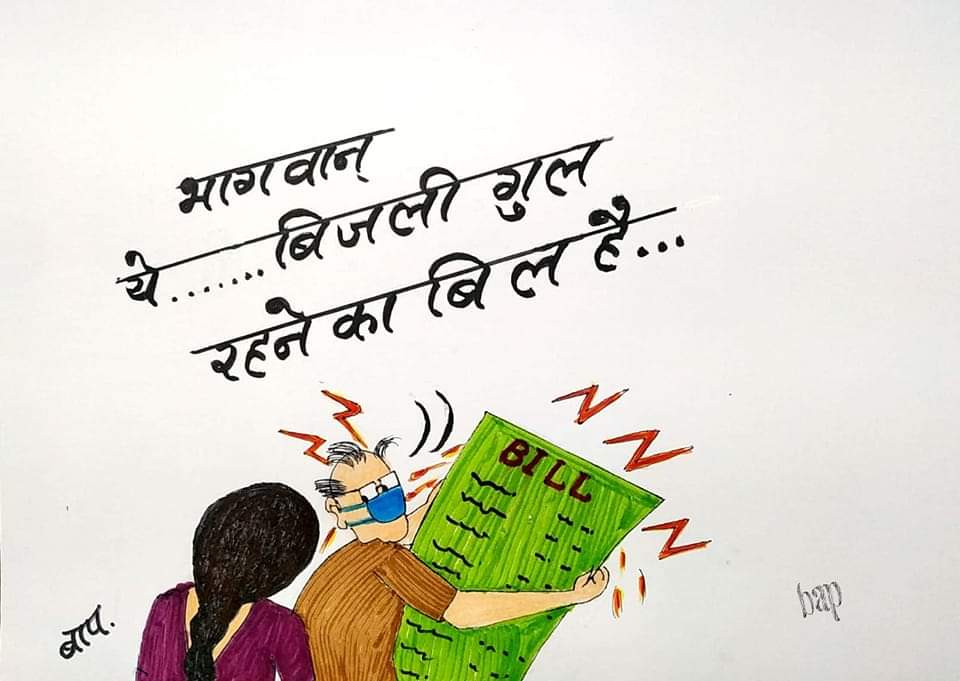 भागवान्
ये.......बिजली गुल
रहने का बिल है...
BILL
बाप.
bap